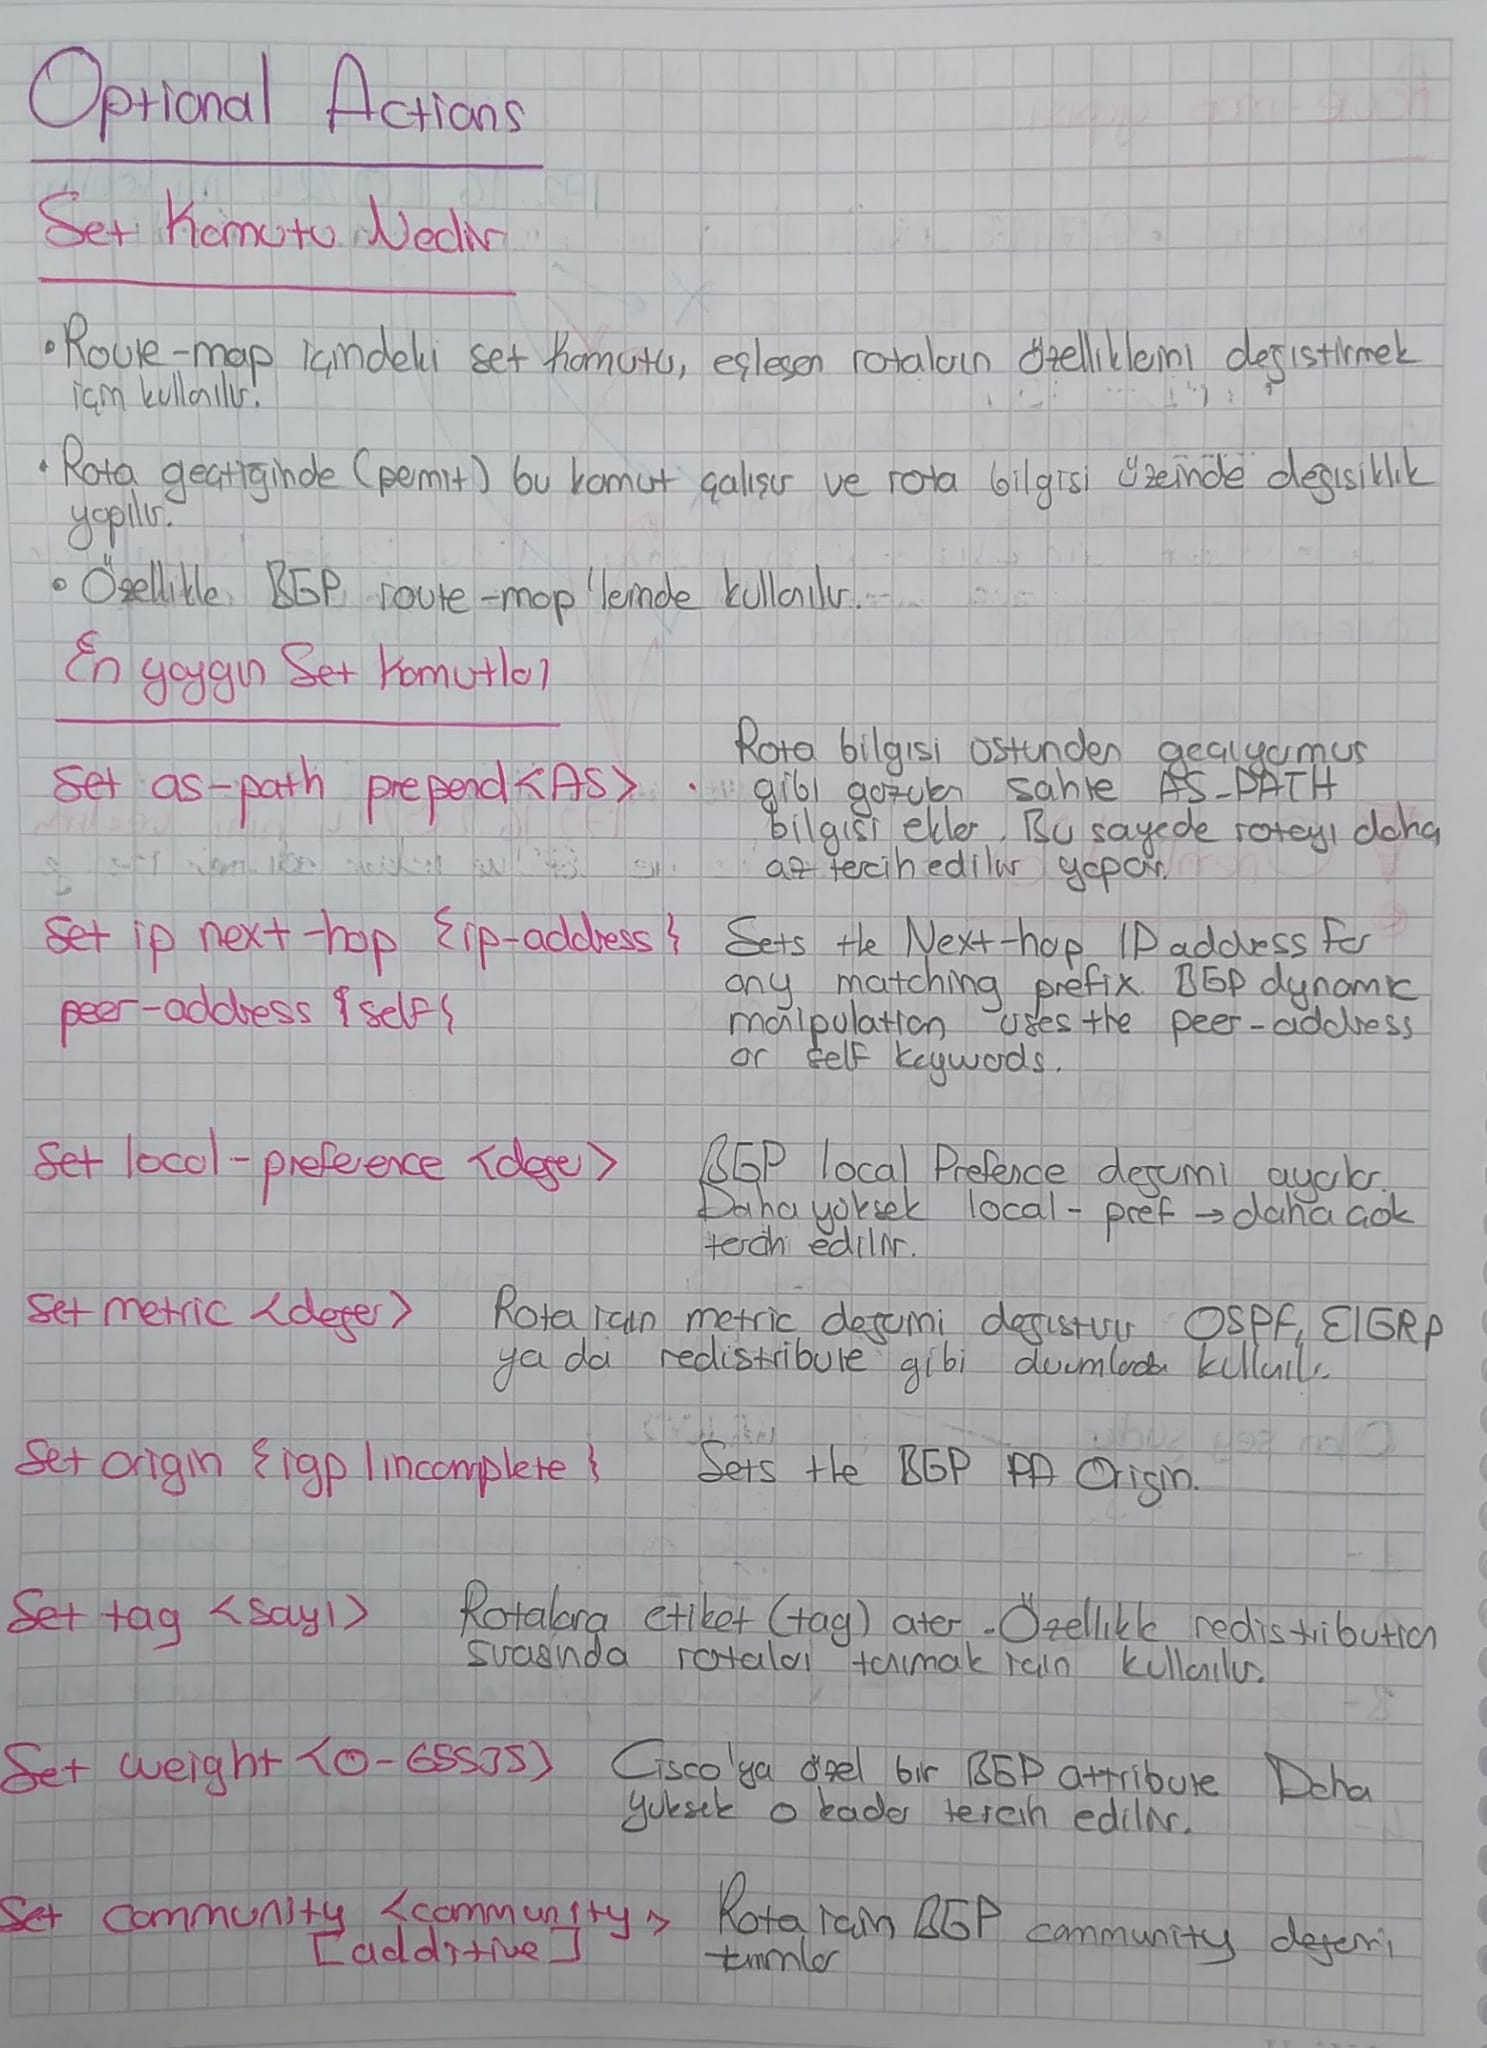 Optional Actions
Set Komutu Nedir
• Route-map içindeki set komutu, eşleşen rotaların özelliklerini değiştirmek
için kullanılır.
• Rota geçtiğinde (permit) bu komut çalışır ve rota bilgisi üzerinde değişiklik
yapılır.
• Özellikle BGP route-map'lerinde kullanılır.
En yaygın Set Komutları
Set as-path prepend <AS>
Rota bilgisi üstünden geçiyormuş
gibi gözüken sahte AS-PATH
bilgisi ekler. Bu sayede rotayı daha
az tercih edilir yapar.
Set ip next-hop {ip-address}
peer-address {self}
Sets the Next-hop IP address for
any matching prefix BGP dynamic
manipulation uses the peer-address
or self keywords.
Set local-preference <değer>
BGP local Prefence değerini ayarlar.
Daha yüksek local-pref → daha çok
tercih edilir.
Set metric <değer>
Rota için metric değerini değiştirir OSPF, EIGRP
ya da redistribute gibi durumlarda kullanılır.
Set origin {igp | incomplete}
Sets the BGP PA Origin.
Set tag <sayı>
Rotalara etiket (tag) atar. Özellikle redistribution
sırasında rotaları tanımak için kullanılır.
Set weight <0-65535>
Cisco'ya özel bir BGP attribute Daha
yüksek o kadar tercih edilir.
Set community <community>
[additive]
Rota için BGP community değerini
tanımlar